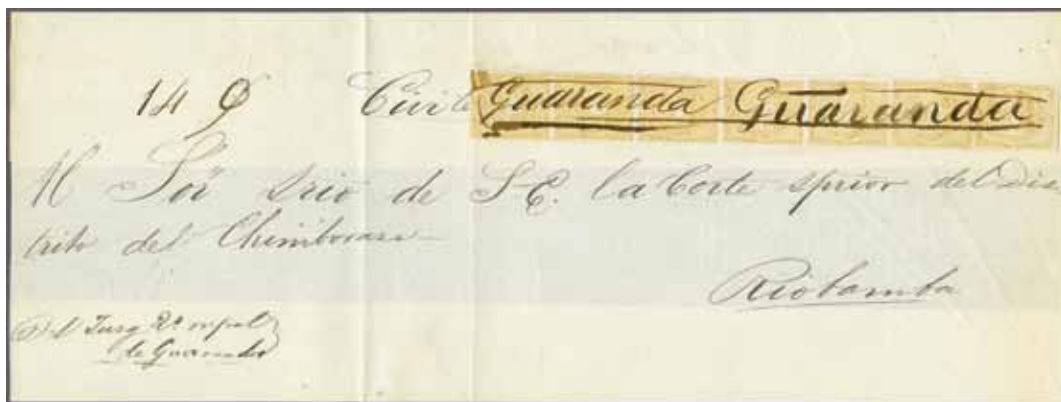 14 Civil Guaranda Guaranda
Al Sor Srio de S. E. la Corte Sprior del Dis
trito del Chimborazo
Riobamba
Del Juez 2º mpal
de Guaranda